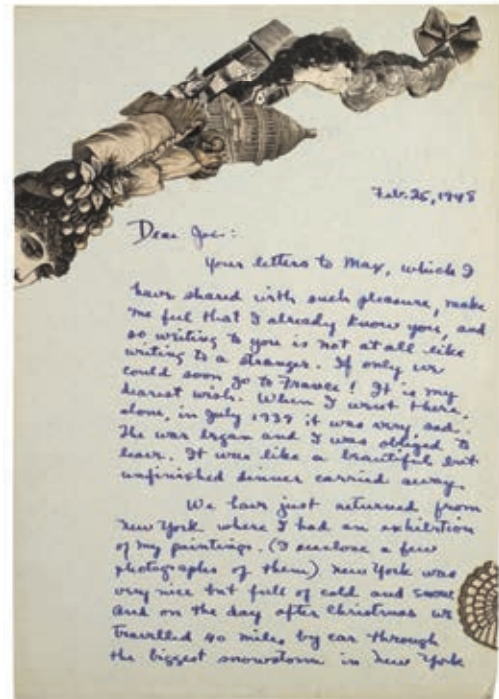 Feb. 25, 1948
Dear Joë:
Your letters to Max, which I
have shared with such pleasure, make
me feel that I already know you, and
so writing to you is not at all like
writing to a stranger. If only we
could soon go to France! It is my
dearest wish. When I went there,
alone, in July 1939 it was very sad.
The war began and I was obliged to
leave. It was like a beautiful but
unfinished dinner carried away.
We have just returned from
New York where I had an exhibition
of my paintings. (I enclose a few
photographs of them) New York was
very nice but full of cold and snow
and on the day after Christmas we
travelled 40 miles by car through
the biggest snowstorm in New York